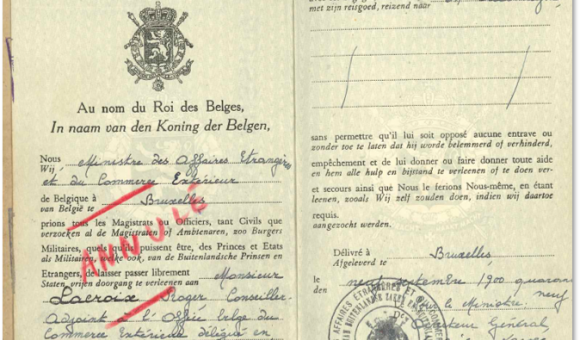 Au nom du Roi des Belges,
In naam van den Koning der Belgen,
Nous Ministre des Affaires Etrangères
Wij
et du Commerce Extérieur
de Belgique à Bruxelles
van België te
ANNULÉ
prions tous les Magistrats ou Officiers, tant Civils que
verzoeken al de Magistraten of Ambtenaren, zoo Burgers
Militaires, quels qu'ils puissent être, des Princes et Etats
als Militairen, welke ook, van de Buitenlandsche Prinsen en
Etrangers, de laisser passer librement Monsieur
Staten, vrijen doorgang te verleenen aan
Lacroix Roger Conseiller-
Adjoint à l'Office belge du
Commerce Extérieur délégué en
met zijn reisgoed, reizend naar
sans permettre qu'il lui soit opposé aucune entrave ou
zonder toe te laten dat hij worde belemmerd of verhinderd,
empêchement et de lui donner ou faire donner toute aide
en hem alle hulp en bijstand te verleenen of te doen ver-
et secours ainsi que Nous le ferions Nous-même, en étant
leenen, zooals Wij zelf zouden doen, indien wij daartoe
requis.
aangezocht werden.
Délivré à Bruxelles,
Afgeleverd te
le neuf septembre 1900 quarante
den neuf
Pour le Ministre,
Directeur Général
AFFAIRES ETRANGERES ET